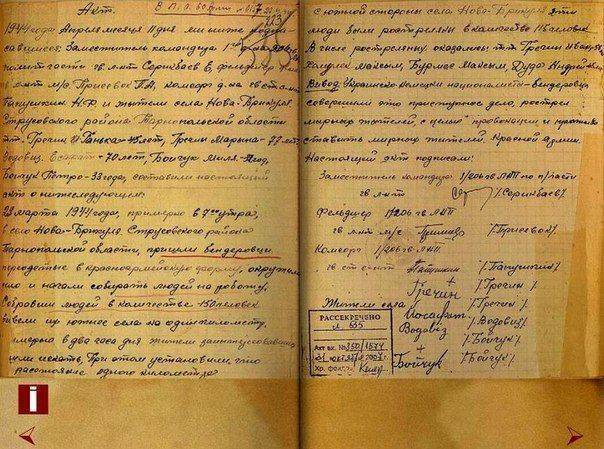 Акт.
223
1944 года Апреля месяца 11 дня мы ниже подпи-
савшиеся: Заместитель командира 1
политчасти гв. л-нт Серикбаев Б, фельдшер
л-нт м/с Присевок П.А, комсорг д-на гв ст л-нт
Папушкин Н.Ф и жители села Нова-Брикуля
Струсовского района Тарнопольской области
тт. Гречин Ганька- лет, Гречин Марьяна-77 лет
Водовиз -70 лет, Бойчук Миля-
Бойчук Петро-33 года, составили настоящий
акт о нижеследующем:
28 марта 1944 года, примерно в 7 час утра,
в село Нова-Брикуля Струсовского района
Тарнопольской области, пришли бендеровцы
переодетые в красноармейскую форму, окружи-
ли село и начали собирать людей на работу.
Собравши людей в количестве 150 человек
вывели их южнее села на один километр.
в два часа дня жители
искать, При этом установили, что
расстояние одного километра
с южной стороны села Нова-Брикуля эти
люди были расстреляны в количестве человек
В числе расстрелянных оказались: тт Гречин Иван
Максим, Бурмас Максим, Дудо Андрей
Вывод: Украинско немецкие националисты-бендеровцы
совершили это преступное дело, расстрел
мирных жителей, с целью провокации и
ставить мирных жителей, Красной армии.
Настоящий акт подписали:
Заместитель командира 1/206 гв ЛАП по п/части
гв л-нт /Серикбаев/
Фельдшер 1/206 гв ЛАП
гв л-нт м/с /Присевок/
Комсорг 1/206 гв ЛАП
гв ст л-нт /Папушкин/
Гречин /Гречин/
Жители села /Гречин/
Водовиз /Водовиз/
/Бойчук/
Бойчук /Бойчук/
РАССЕКРЕЧЕНО
Акт вх. №
2007 г.
Хр. фонда
i